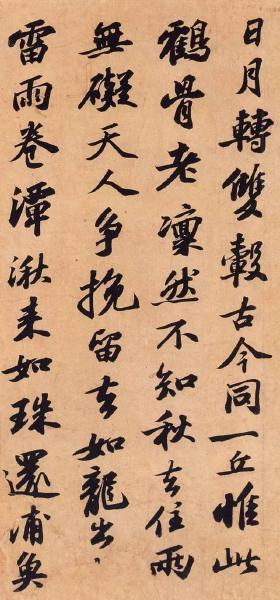 日月轉雙轂古今同一丘惟此
鶴骨老凜然不知秋去住兩
無礙天人爭挽留去如龍出〻
雷雨卷潭湫来如珠還浦魚